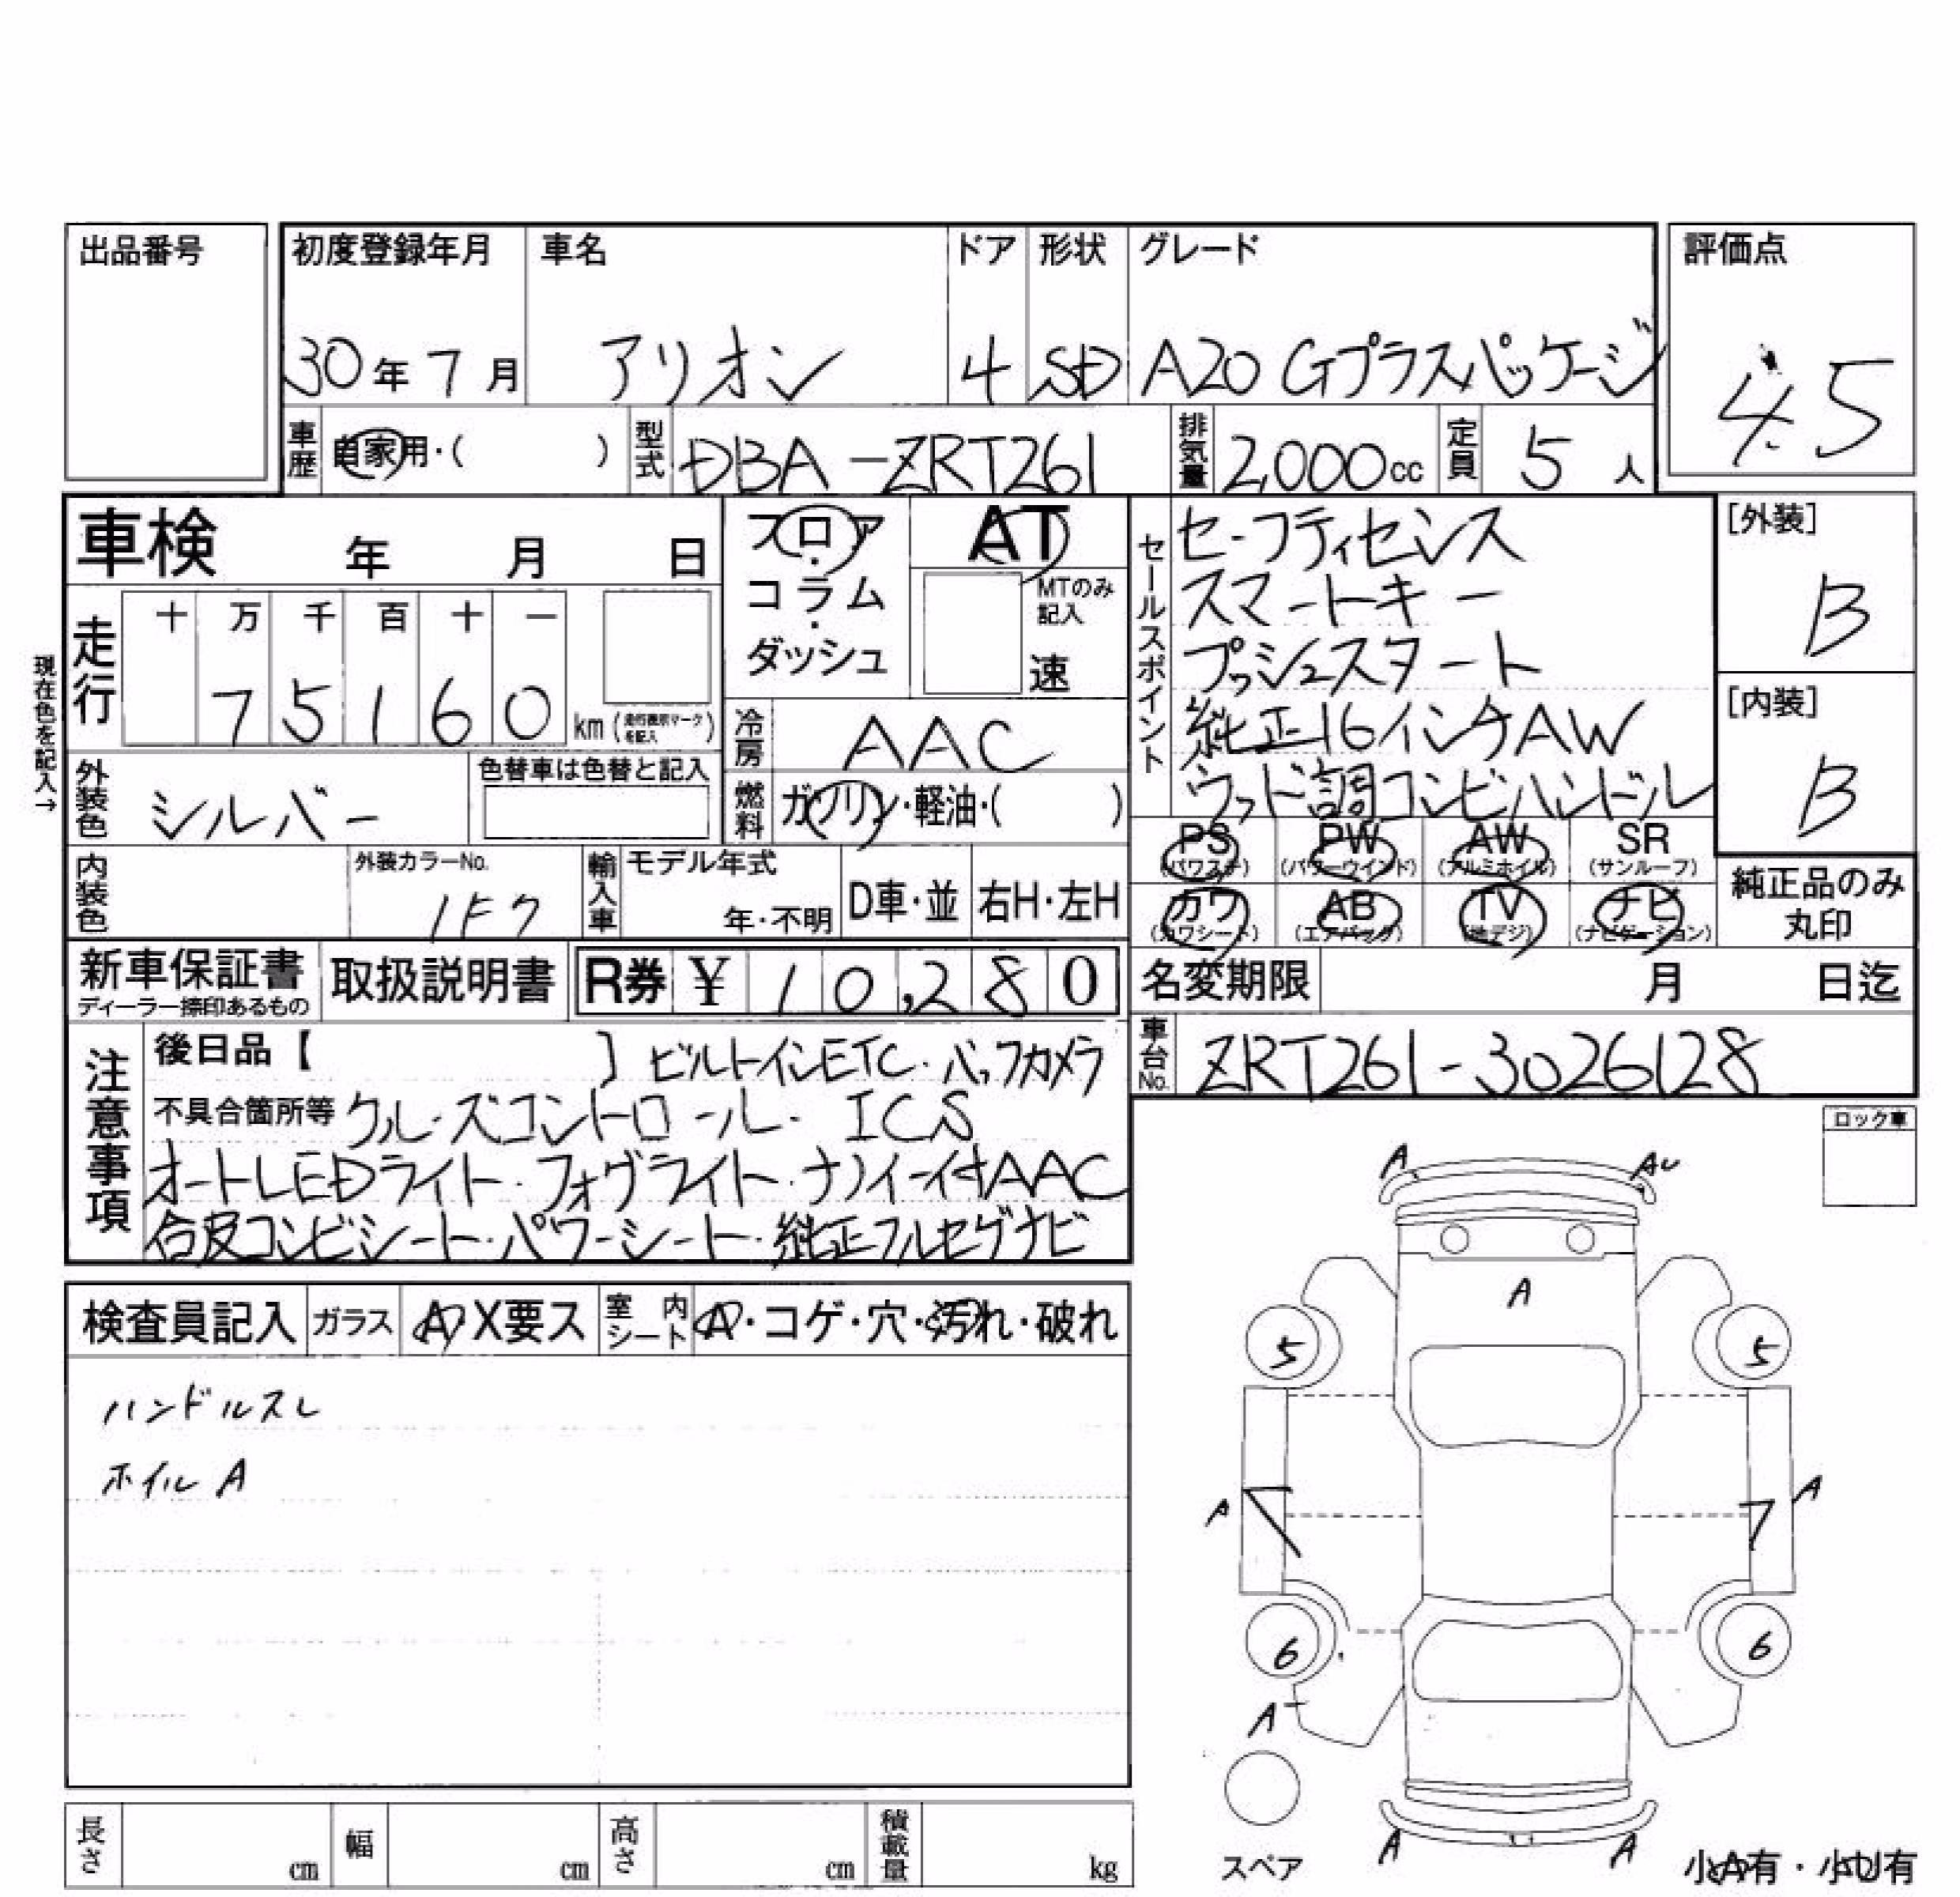 出品番号
初度登録年月 車名 ドア 形状 グレード 評価点
30年7月 アリオン 4 SD A20 Gプラスパッケージ 4.5
車歴 自家用・( ) 型式 DBA-ZRT261 排気量 2,000cc 定員 5人
車検 年 月 日
フロア・コラム・ダッシュ
AT
MTのみ記入
速
セールスポイント
セーフティセンス
スマートキー
プッシュスタート
純正16インチAW
ウッド調コンビハンドル
[外装]
B
[内装]
B
現在色を記入→
走行 十 万 千 百 十 一
75160 km
冷房 AAC
外装色 シルバー 色替車は色替と記入
燃料 ガソリン・軽油・( )
PS PW AW SR
(パワステ) (パワーウインド) (アルミホイル) (サンルーフ)
カワ AB TV ナビ
(カワシート) (エアバック) (地デジ) (ナビゲーション)
純正品のみ
丸印
内装色 外装カラーNo. 1F7 輸入車 モデル年式 年・不明 D車・並 右H・左H
新車保証書 取扱説明書 R券 ¥ 10,280
ディーラー捺印あるもの
名変期限 月 日迄
車台No. ZRT261-3026128
注意事項
後日品【 】ビルトインETC・バックカメラ
不具合箇所等 クルーズコントロール・ICS
オートLEDライト・フォグライト・ナノイー付AAC
合皮コンビシート・パワーシート・純正フルセグナビ
ロック車
検査員記入 ガラス A X要ス 室内シート A・コゲ・穴・汚れ・破れ
ハンドルスレ
ホイルA
A AU
A
5 5
A A
6 6
A
スペア
A A
小A有・小U有
長さ cm 幅 cm 高さ cm 積載量 kg